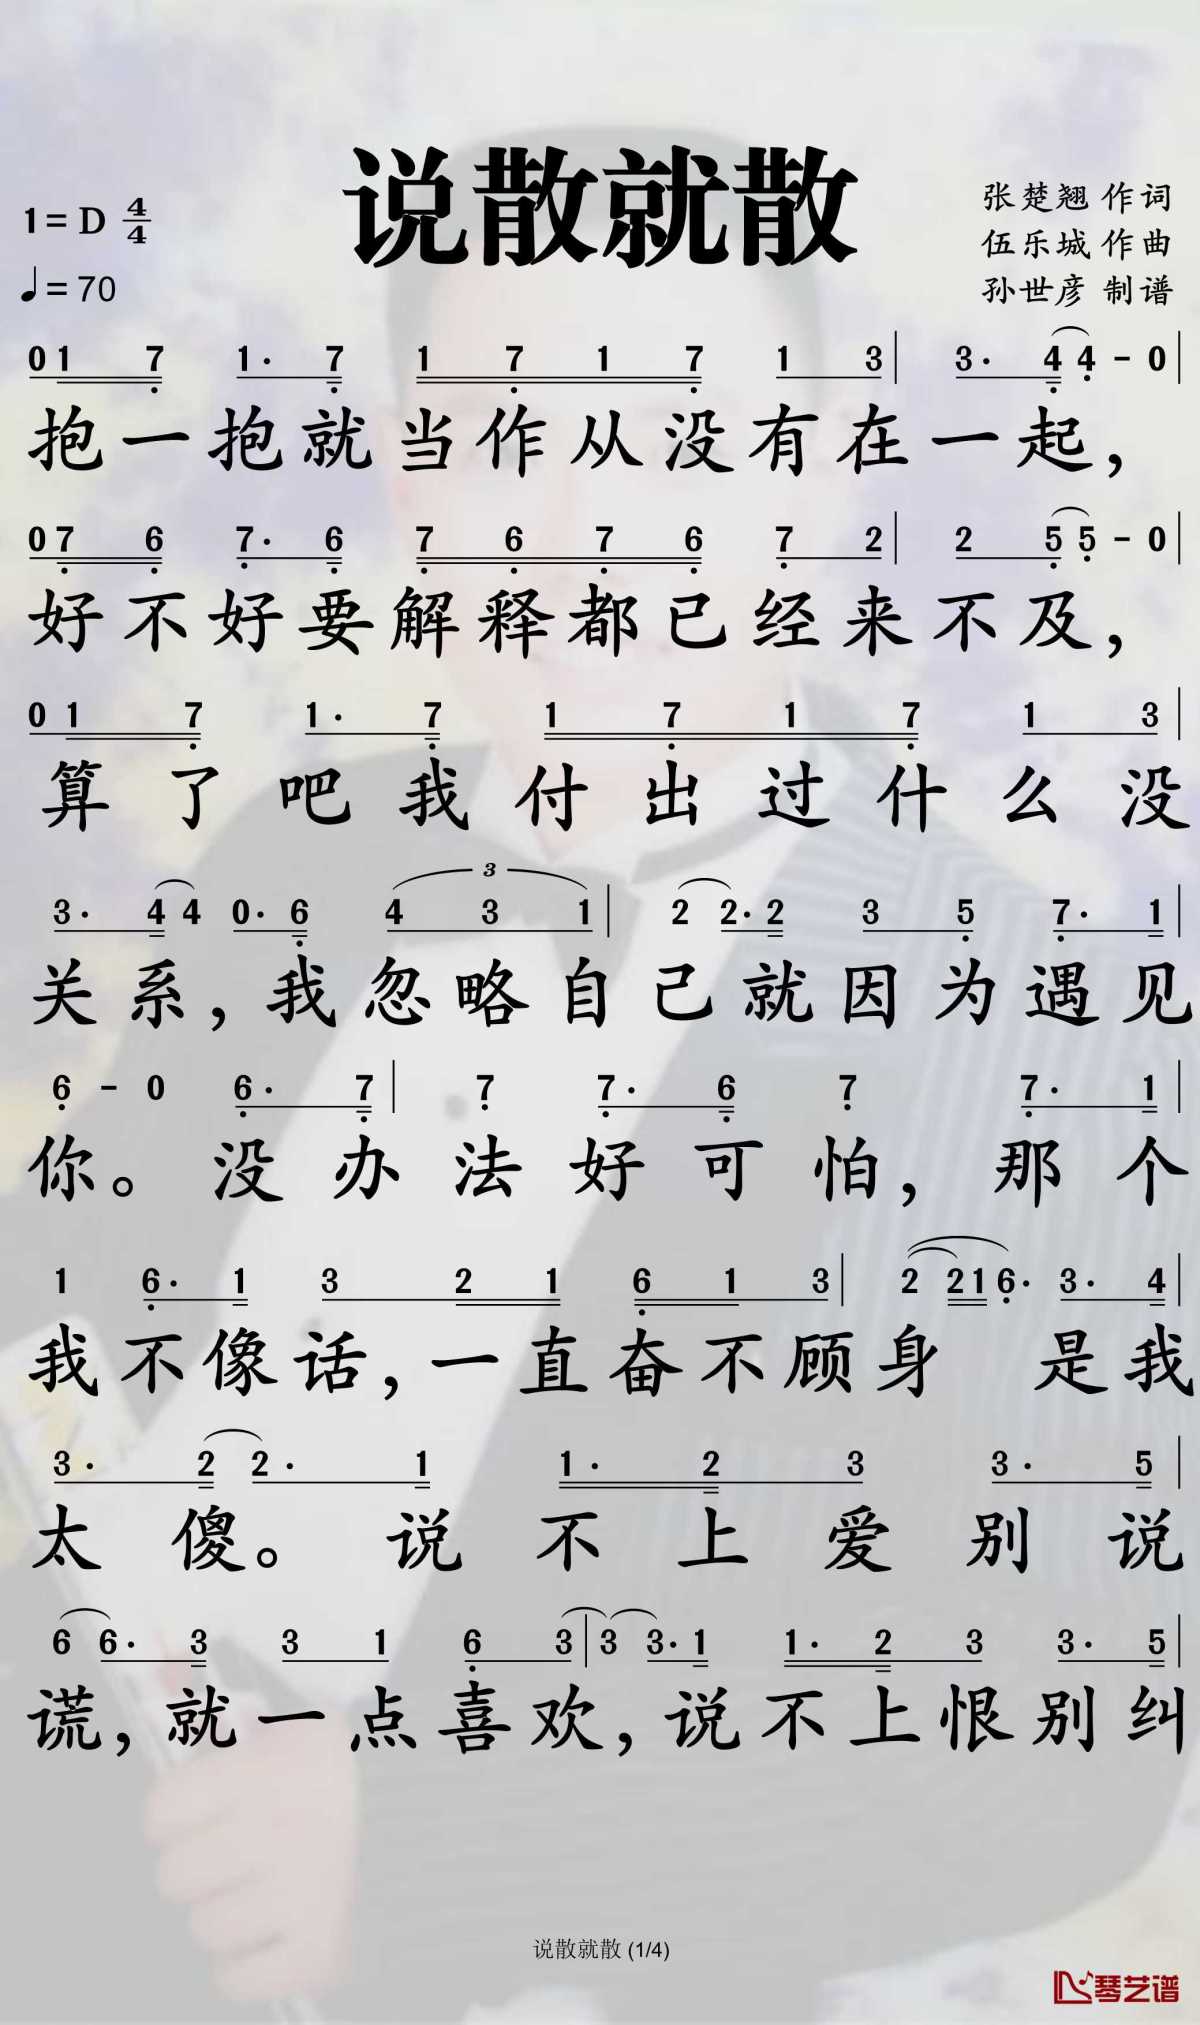 说散就散
1=D 4/4
♩=70
张楚翘 作词
伍乐城 作曲
孙世彦 制谱
0 1 7 1· 7 1 7 1 7 1 3 | 3· 4 4 - 0 |
抱一抱就当作从没有在一起，
0 7 6 7· 6 7 6 7 6 7 2 | 2 5 5 - 0 |
好不好要解释都已经来不及，
0 1 7 1· 7 1 7 1 7 1 3 |
算了吧我付出过什么没
3· 4 4 0· 6 4 3 1 | 2 2· 2 3 5 7· 1 |
3
关系，我忽略自己就因为遇见
6 - 0 6· 7 | 7 7· 6 7 7· 1 |
你。没办法好可怕，那个
1 6· 1 3 2 1 6 1 3 | 2 2 1 6· 3· 4 |
我不像话，一直奋不顾身 是我
3· 2 2· 1 1· 2 3 3· 5 |
太傻。说不上爱别说
6 6· 3 3 1 6 3 | 3 3· 1 1· 2 3 3· 5 |
谎，就一点喜欢，说不上恨别纠
说散就散 (1/4)
琴艺谱